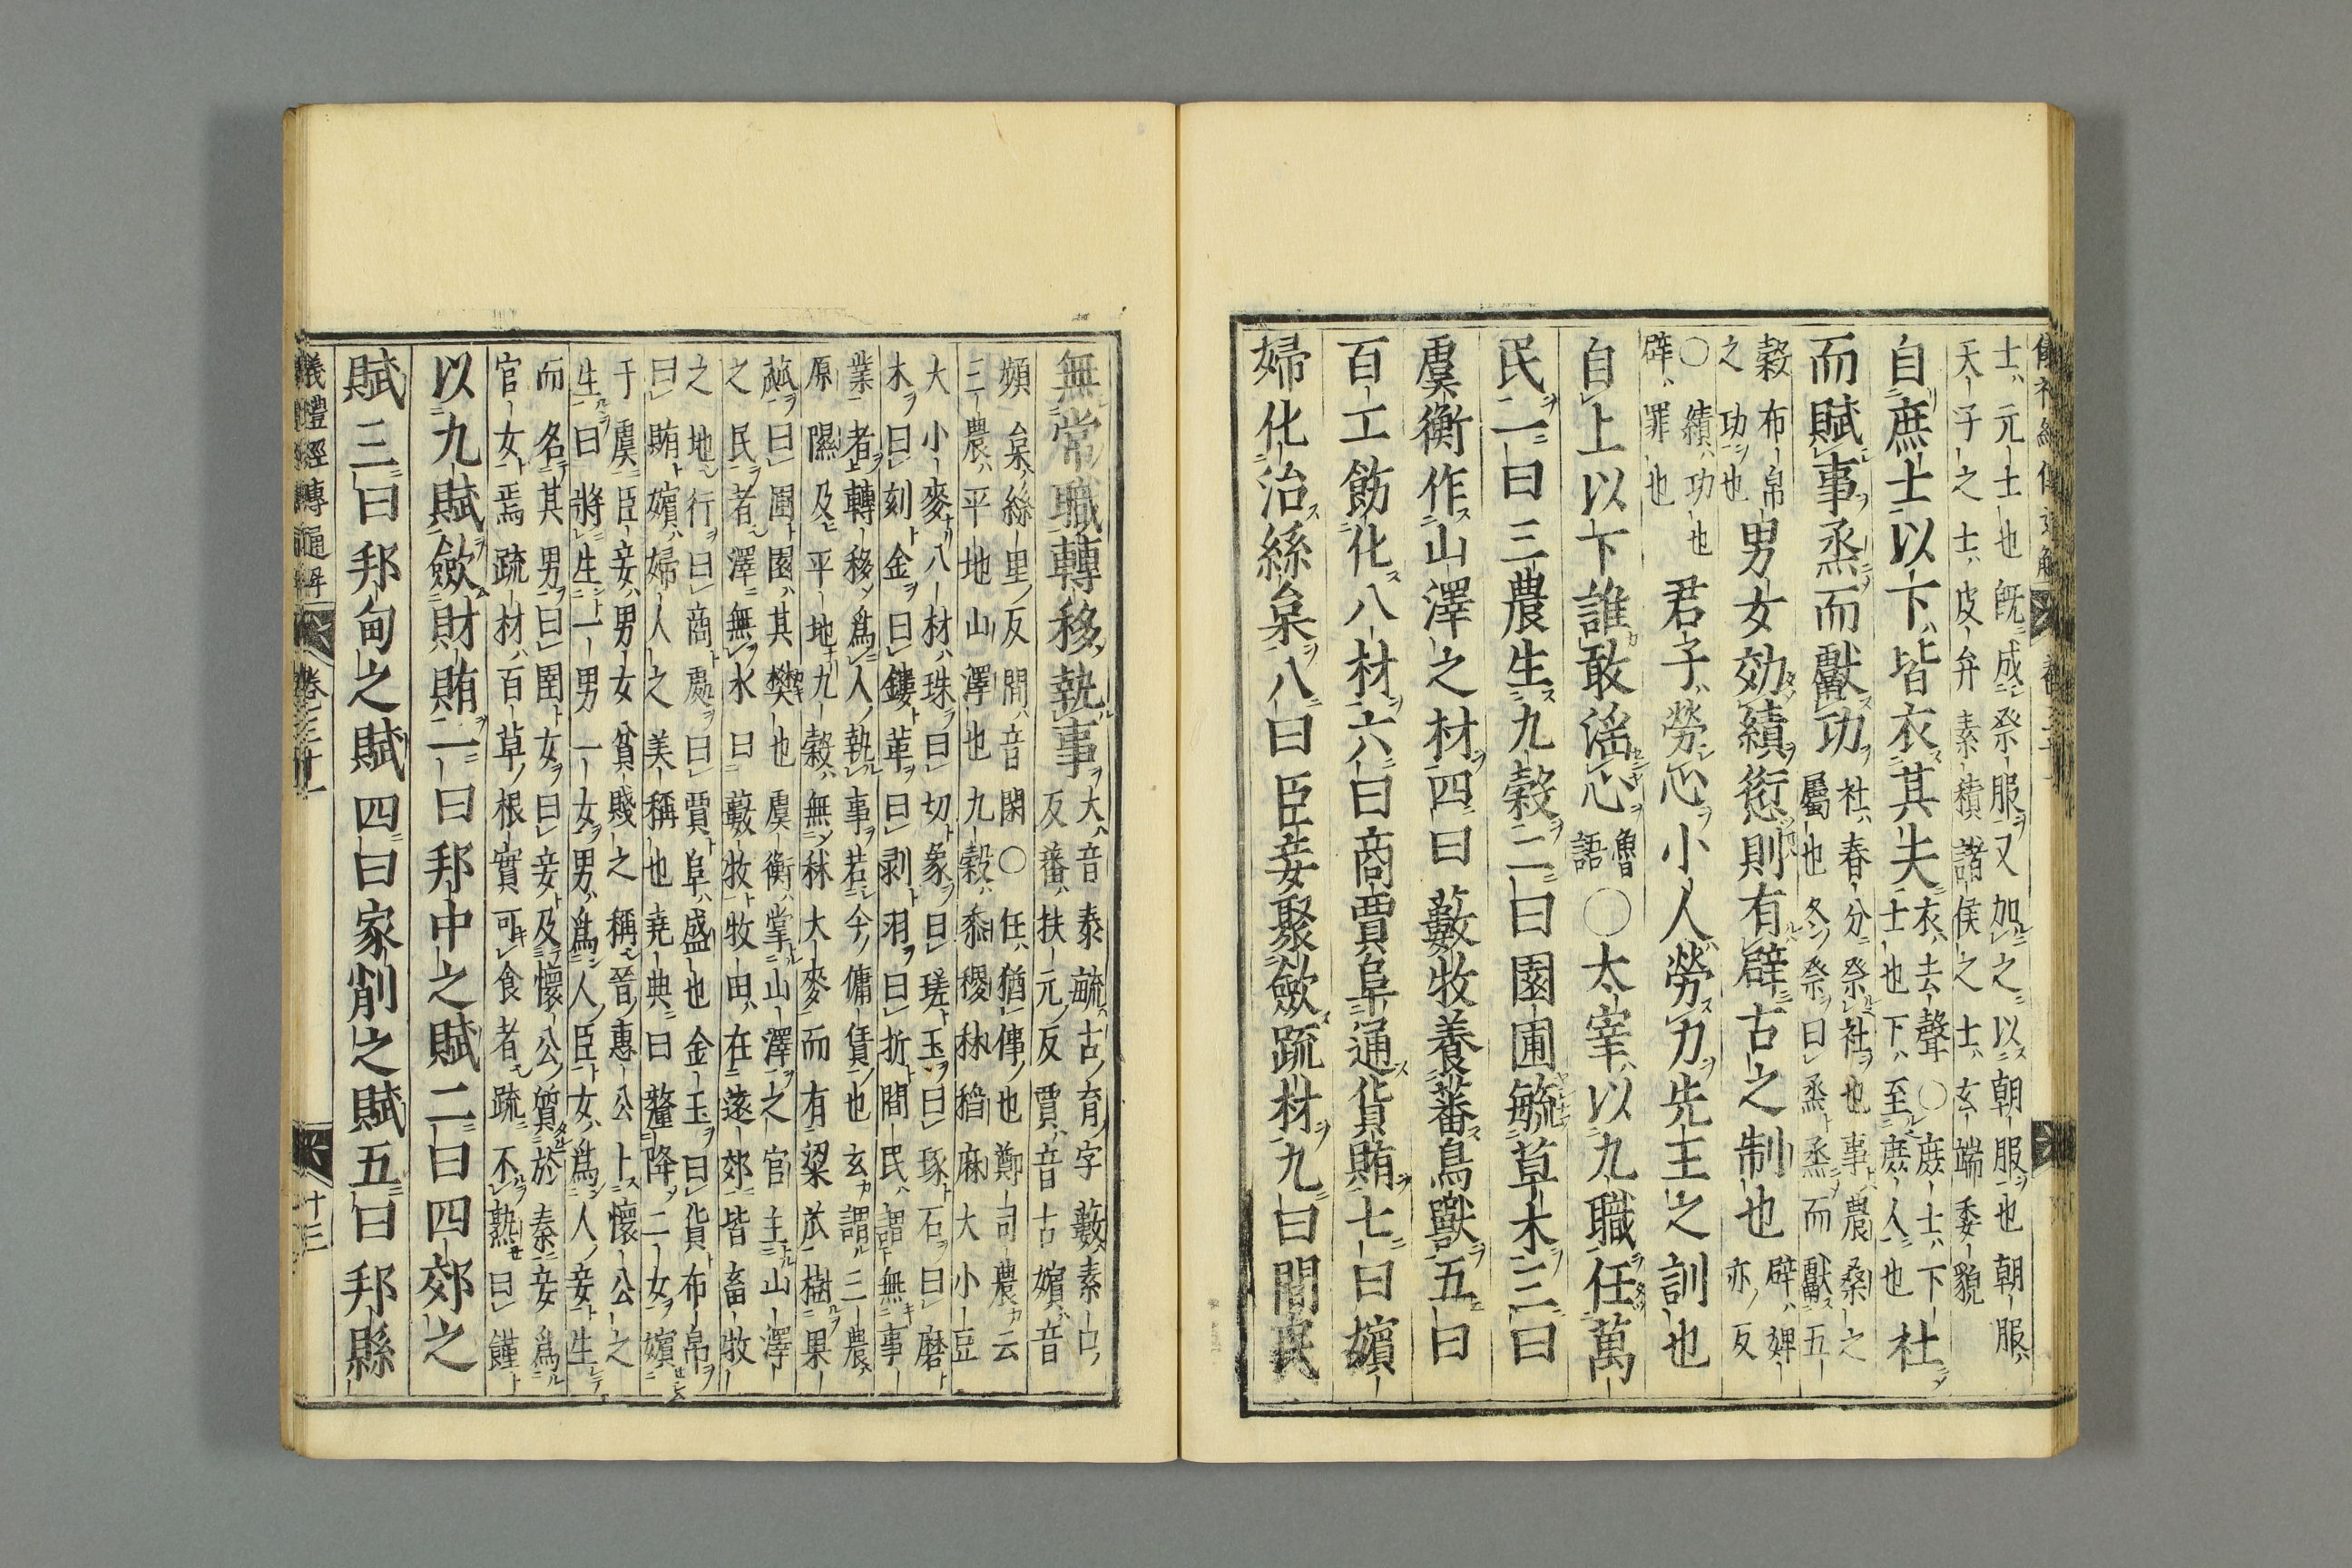 士元士也既成祭服又加之以朝服也朝服
天子之士皮弁素積諸侯之士玄端委貌
自庶士以下皆衣其夫
衣去聲○庶士下
士也下至庶人也
社
而賦事烝而獻功
社春分祭社也事農桑之
屬也冬祭曰烝烝而獻五
穀布帛
之功也
男女効績愆則有辟古之制也
辟婢
亦反
○績功也
辟罪也
君子勞心小人勞力先王之訓也
自上以下誰敢淫心
魯
語
○太宰以九職任萬
民一曰三農生九穀二曰園圃毓草木三曰
虞衡作山澤之材四曰藪牧養蕃鳥獸五曰
百工飭化八材六曰商賈阜通貨賄七曰嬪
婦化治絲枲八曰臣妾聚斂疏材九曰閒民
無常職轉移執事
大音泰毓古育字藪素口
反蕃扶元反賈音古嬪音
頻枲絲里反閒音閑○任猶傳也鄭司農云
三農平地山澤也九穀黍稷秫稻麻大小豆
大小麥八材珠曰切象曰瑳玉曰琢石曰磨
木曰刻金曰鏤革曰剥羽曰折閒民謂無事
業者轉移為人執事若今傭賃也玄謂三農
原隰及平地九穀無秫大麥而有粱苽樹果
蓏曰圃園其樊也虞衡掌山澤之官主山澤
之民者澤無水曰藪牧牧田在遠郊皆畜牧
之地行曰商處曰賈阜盛也金玉曰貨布帛
曰賄嬪婦人之美稱也堯典曰釐降二女嬪
于虞臣妾男女貧賤之稱晉惠公卜懷公之
生曰將生一男一女男為人臣女為人妾生
而名其男曰圉女曰妾及懷公質於秦妾為
官女焉疏材百草根實可食者疏不熟曰饉
以九賦斂財賄一曰邦中之賦二曰四郊之
賦三曰邦甸之賦四曰家削之賦五曰邦縣
儀禮經傳通解 卷三十一 十三